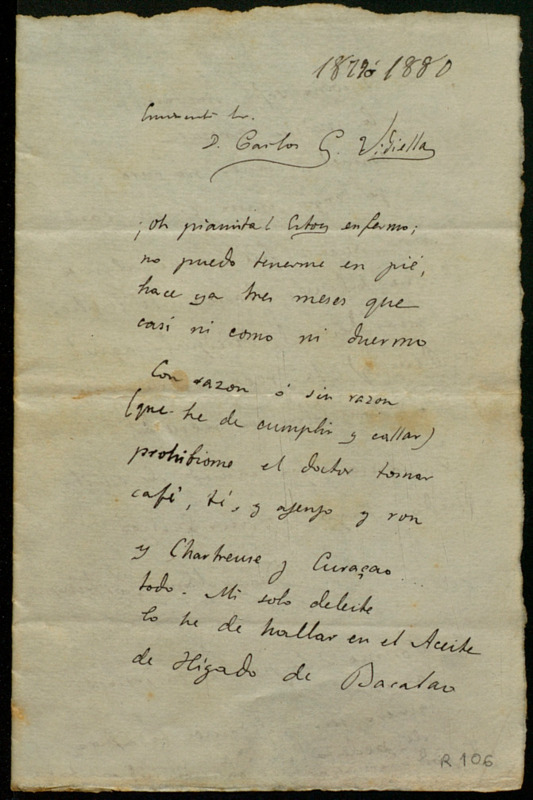 1879 ó 1880
D. Carlos G. Vidiella
¡oh pianista! Estoy enfermo;
no puedo tenerme en pié,
hace ya tres meses que
casi ni como ni duermo
Con razon ó sin razon
(que he de cumplir y callar)
prohibiome el doctor tomar
café, té, y ajenjo y ron
y Chartreuse y Curaçao ...
todo. Mi solo deleite
lo he de hallar en el Aceite
de Hígado de Bacalao
R 106